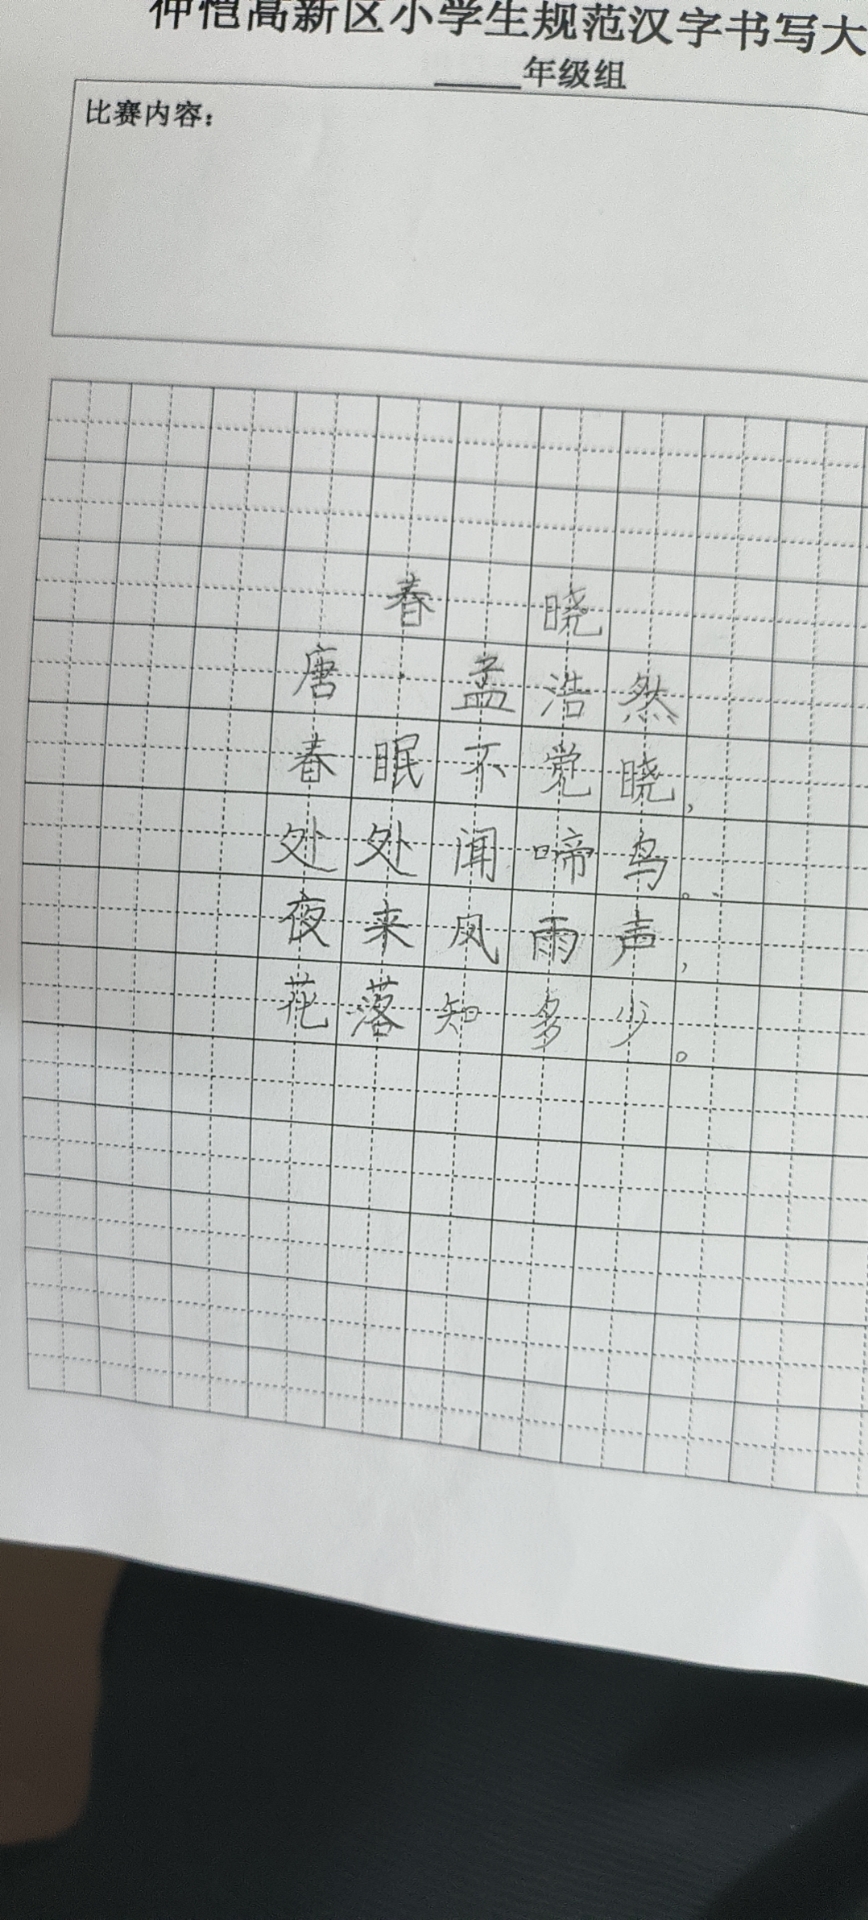 仲恺高新区小学生规范汉字书写大
年级组
比赛内容：
春 晓
唐·孟浩然
春眠不觉晓，
处处闻啼鸟。
夜来风雨声，
花落知多少。